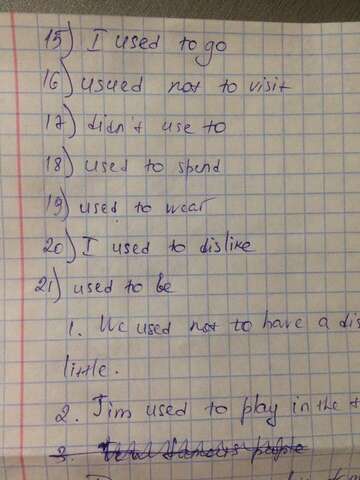 15) I used to go
16) usued not to visit
17) didn't use to
18) used to spend
19) used to wear
20) I used to dislike
21) used to be
1. We used not to have a dis
little.
2. Jim used to play in the
3.